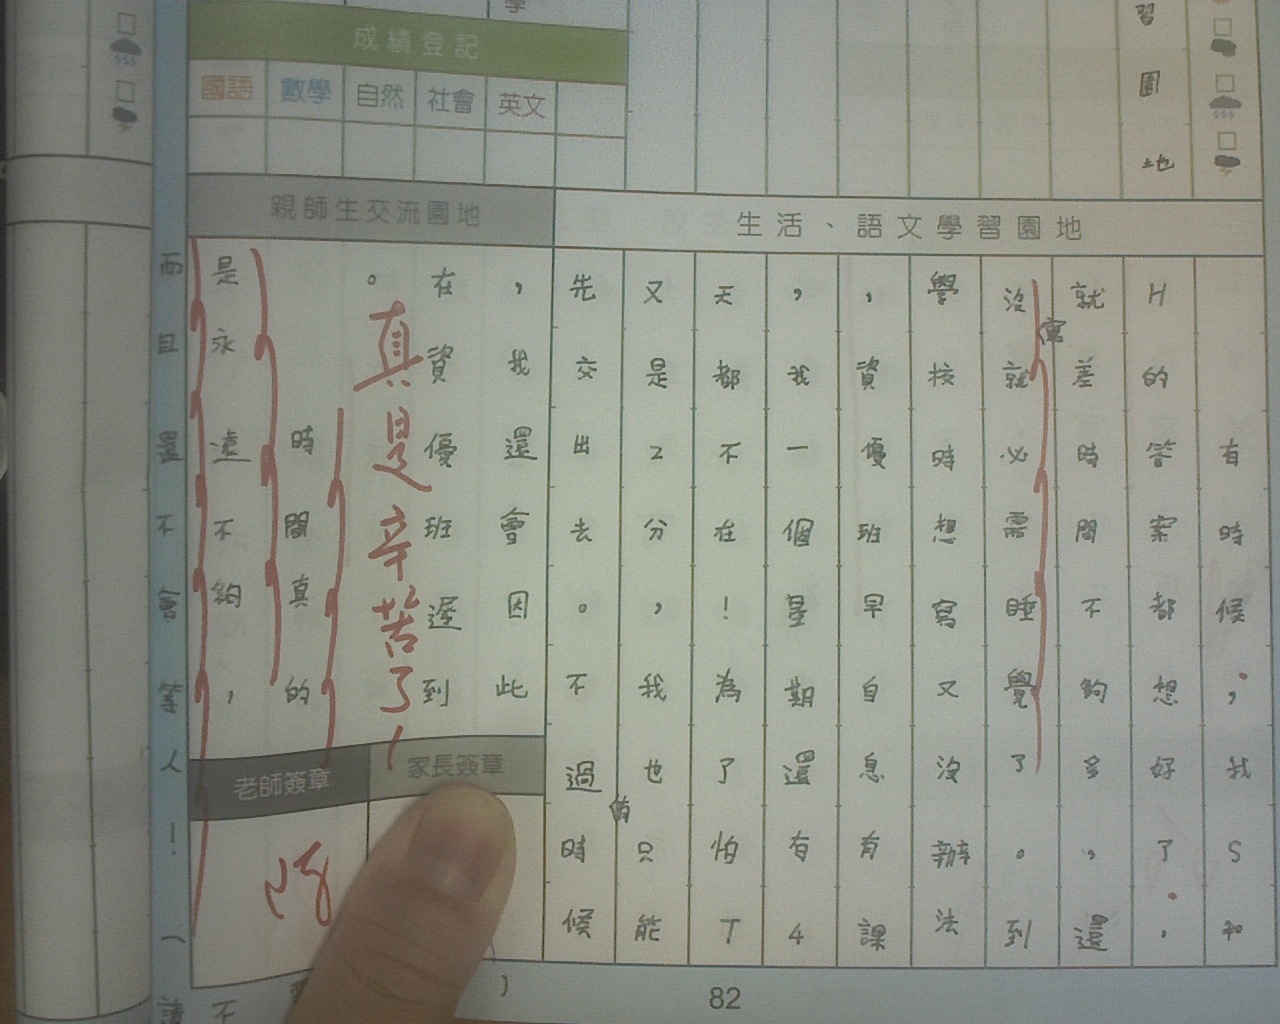 學
習
園
地
成績登記
國語 數學 自然 社會 英文
親師生交流園地
生活、語文學習園地
有時候,我S和
H的答案都想好了,
就差時間不夠多,還
沒寫就必需睡覺了。到
學校時想寫又沒辦法
,資優班早自息有課
,我一個星期還有4
天都不在!為了怕T
又是Z分,我也只能
先交出去。不過有時候
,我還會因此
在資優班遲到
。
真是辛苦了!
時間真的
是永遠不夠,
而且還不會等人!
老師簽章
家長簽章
82